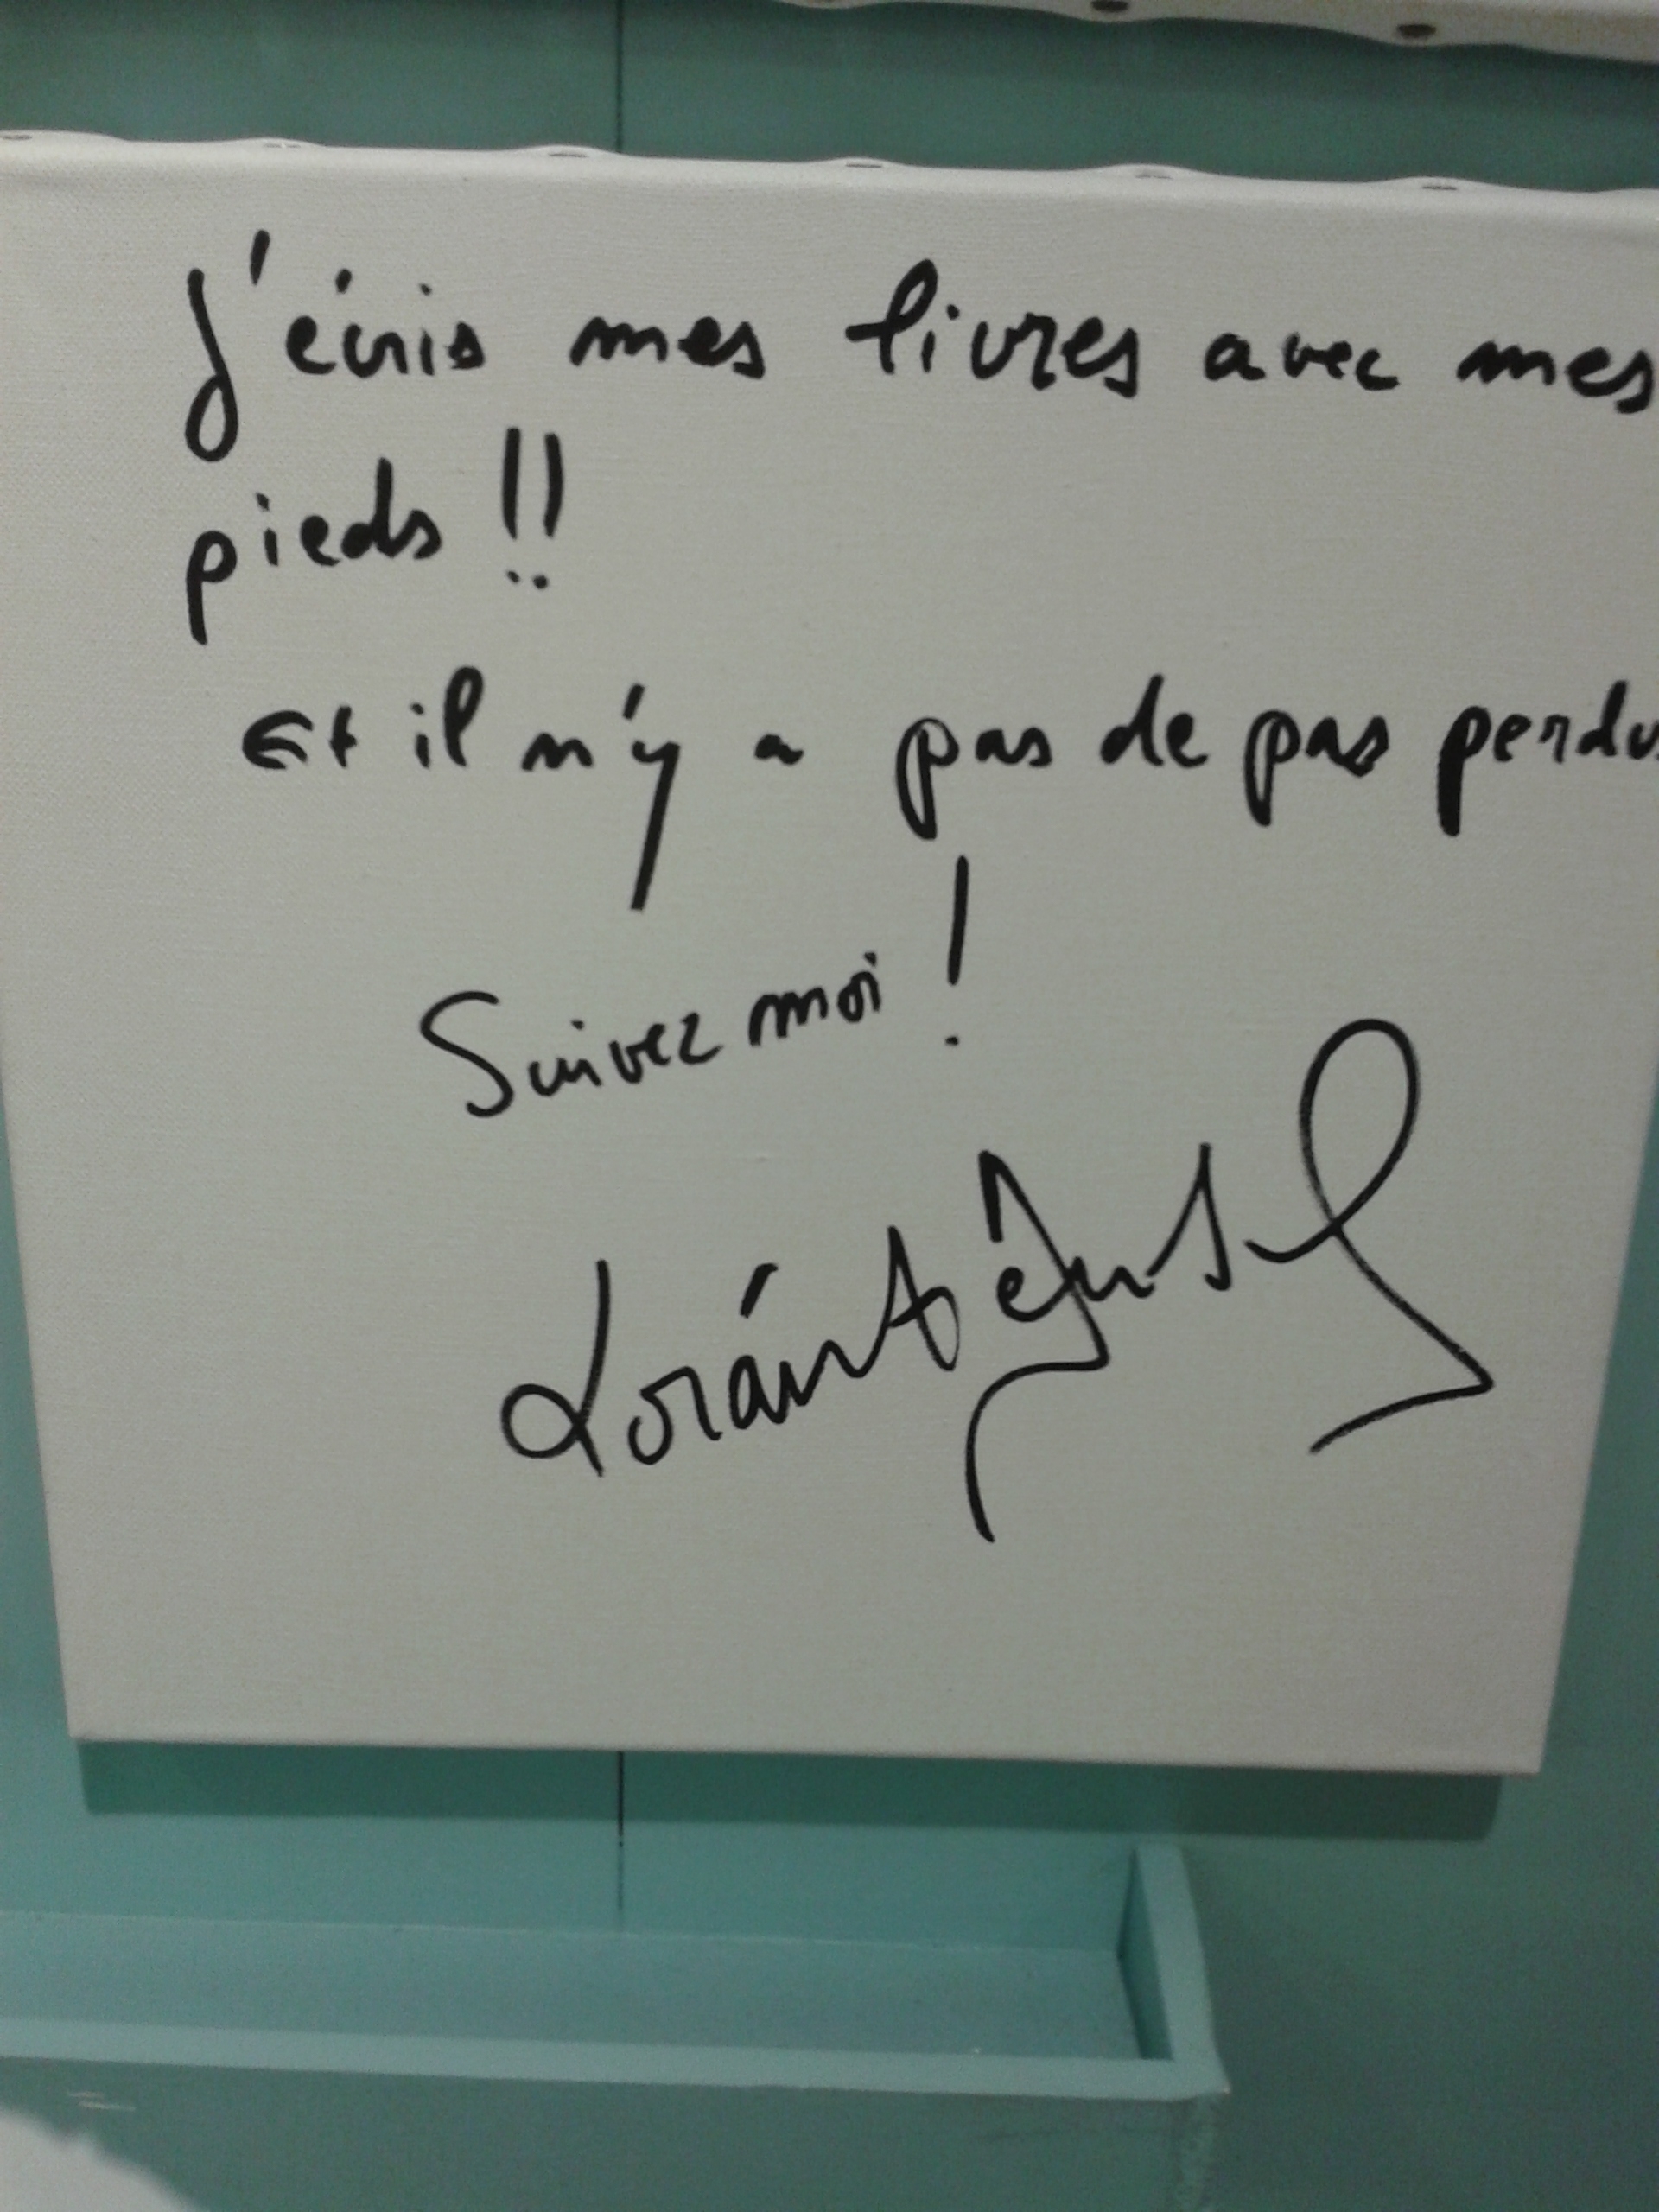 J'écris mes livres avec mes
pieds !!
Et il n'y a pas de pas perdus
Suivez moi !
Loránt